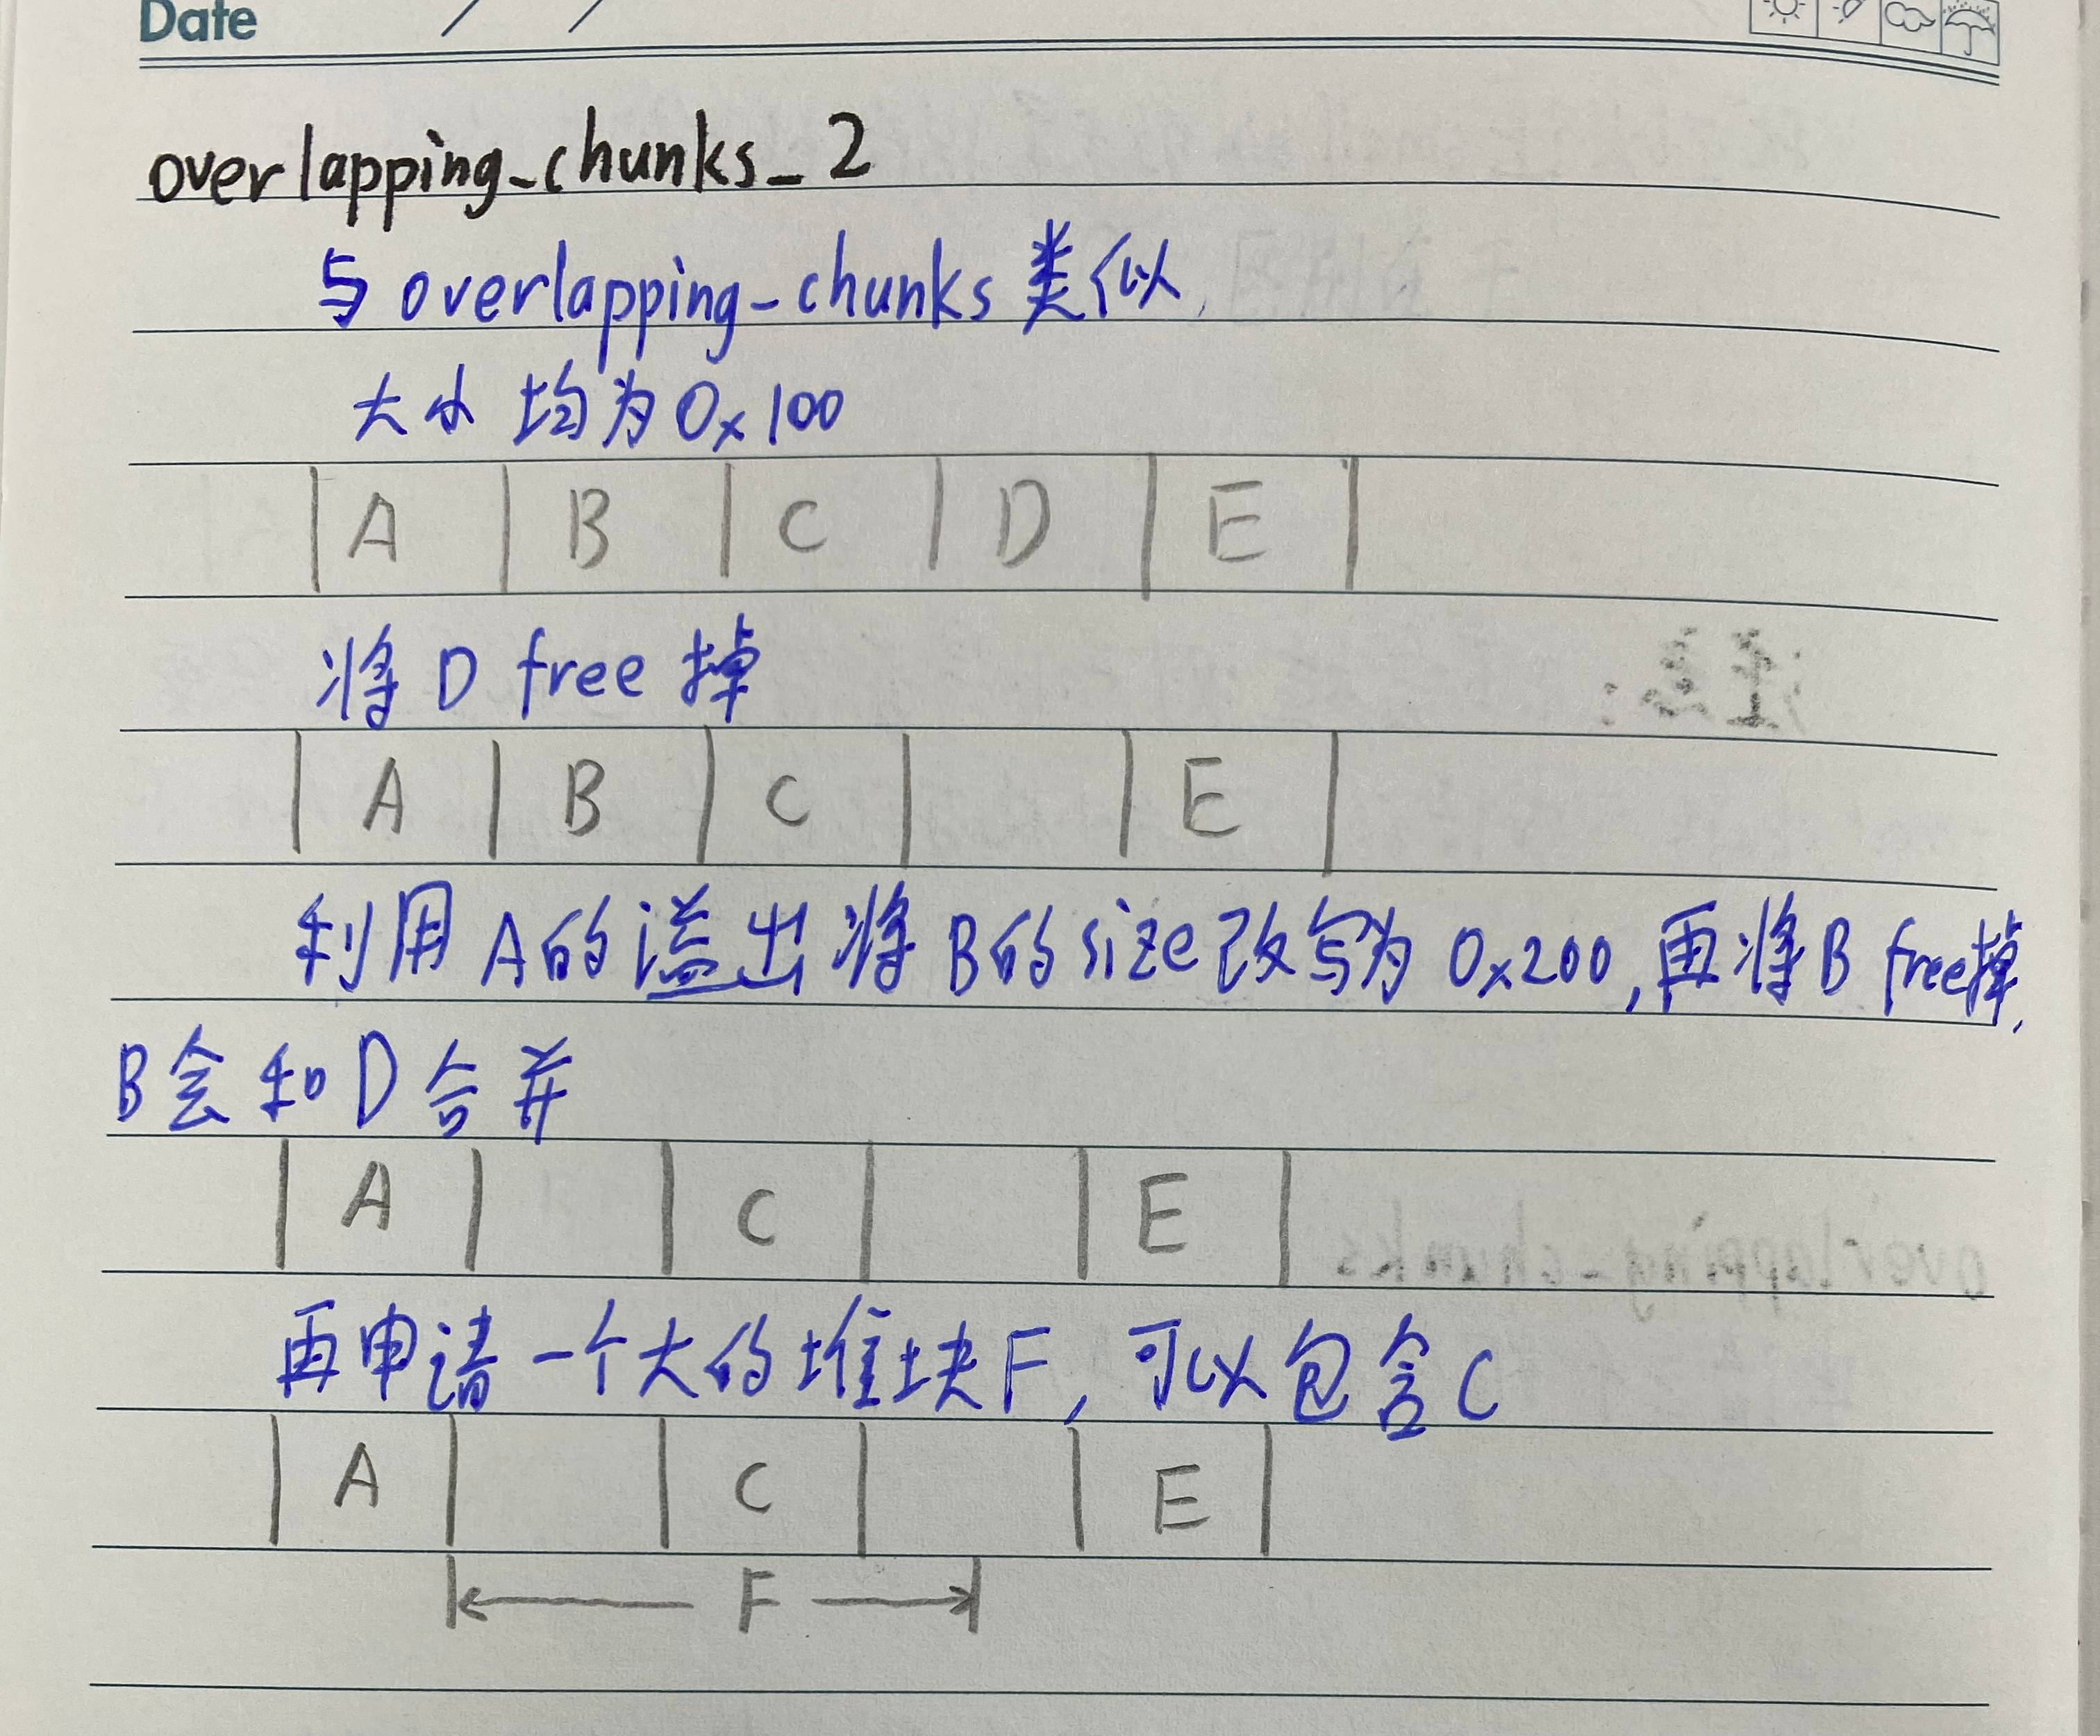 Date / /
overlapping_chunks_2
与 overlapping_chunks 类似,
大小均为 0x100
| A | B | C | D | E |
将 D free 掉
| A | B | C | | E |
利用 A 的溢出将 B 的 size 改写为 0x200, 再将 B free掉,
B 会和 D 合并
| A | | C | | E |
再申请一个大的堆块 F, 可以包含 C
| A | | C | | E |
F